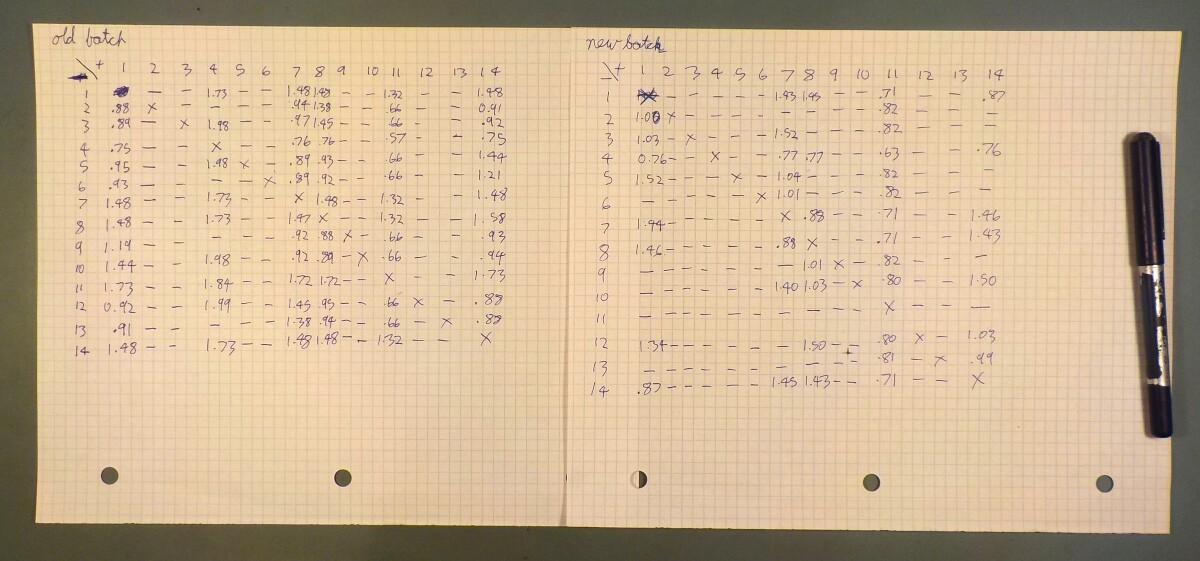 old batch
+ 1 2 3 4 5 6 7 8 9 10 11 12 13 14
1 — — 1.73 — — 1.48 1.48 — — 1.32 — — 1.48
2 .88 X — — — — .94 1.38 — — .66 — — 0.91
3 .89 — X 1.98 — — .97 1.45 — — .66 — — .92
4 .75 — — X — — .76 .76 — — .57 — — .75
5 .95 — — 1.98 X — .89 .93 — — .66 — — 1.44
6 .93 — — — — X .89 .92 — — .66 — — 1.21
7 1.48 — — 1.73 — — X 1.48 — — 1.32 — — 1.48
8 1.48 — — 1.73 — — 1.47 X — — 1.32 — — 1.58
9 1.19 — — — — — .92 .88 X — .66 — — .93
10 1.44 — — 1.98 — — .92 .89 — X .66 — — .94
11 1.73 — — 1.84 — — 1.72 1.72 — — X — — 1.73
12 0.92 — — 1.99 — — 1.45 .95 — — .66 X — .88
13 .91 — — — — — 1.38 .94 — — .66 — X .88
14 1.48 — — 1.73 — — 1.48 1.48 — — 1.32 — — X
new batch
+ 1 2 3 4 5 6 7 8 9 10 11 12 13 14
1 — — — — — 1.43 1.45 — — .71 — — .87
2 1.00 X — — — — — — — — .82 — — —
3 1.03 — X — — — 1.52 — — — .82 — — —
4 0.76 — — X — — .77 .77 — — .63 — — .76
5 1.52 — — — X — 1.04 — — — .82 — — —
6 — — — — — X 1.01 — — — .82 — — —
7 1.44 — — — — — X .88 — — .71 — — 1.46
8 1.46 — — — — — .88 X — — .71 — — 1.43
9 — — — — — — — 1.01 X — .82 — — —
10 — — — — — — 1.40 1.03 — X .80 — — 1.50
11 — — — — — — — — — — X — — —
12 1.34 — — — — — — 1.50 — — .80 X — 1.03
13 — — — — — — — — — — .81 — X .99
14 .87 — — — — — 1.45 1.43 — — .71 — — X